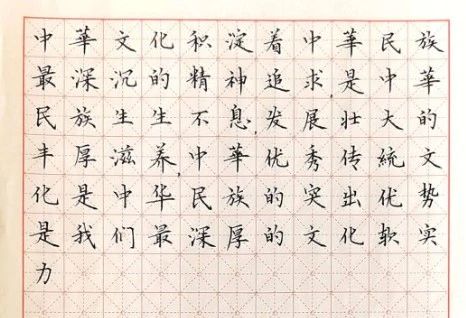 中華文化积淀着中華民族
最深沉的精神追求,是中華
民族生生不息,发展壮大的
丰厚滋养,中華优秀传統文
化是中华民族的突出优势
是我们最深厚的文化软实
力